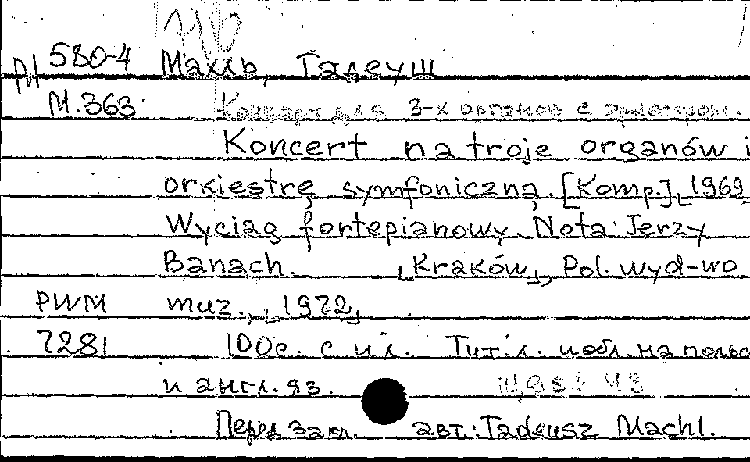 РИ 580-4 Махль, Тадеуш
М.363 Концерт для 3-х органов с оркестром.
Koncert na troje organów i
orkiestrę symfoniczną. [Komp.], 1969
Wyciąg fortepianowy. Nota: Jerzy
Banach. [Kraków], Pol. wyd-wo
PWM muz., [1972]
7281 100с. с ил. Тит. л. и обл. на польс
и англ. яз.
Перед загл. авт.: Tadeusz Machl.